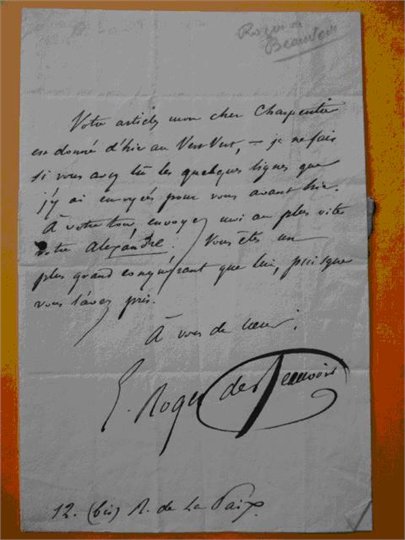 Roger de
Beauvoir
Votre article mon cher Charpentier
est donné d'hier au Vert Vert, – je ne sais
si vous avez lu les quelques lignes que
j'y ai envoyées pour vous avant hier.
À votre tour, envoyez moi au plus vite
votre Alexandre. Vous êtes un
plus grand conquérant que lui, puisque
vous l'avez pris.
À vous de cœur.
E. Roger de Beauvoir
12. (bis) R. de la Paix.